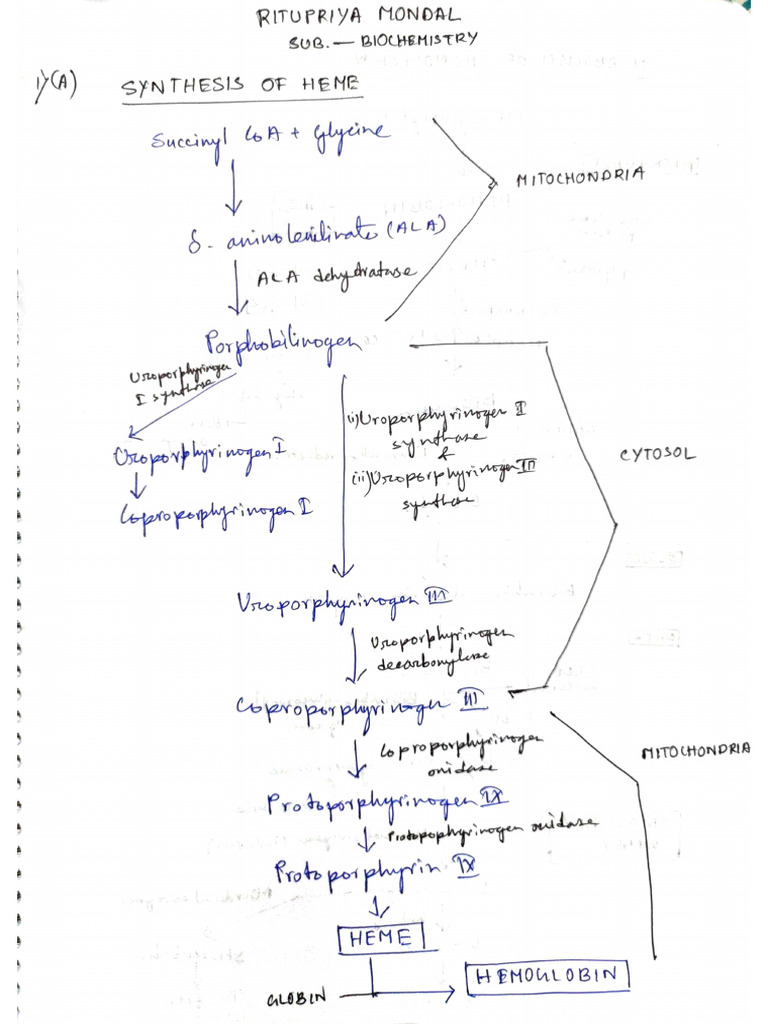 RITUPRIYA MONDAL
SUB. — BIOCHEMISTRY
1)(A) SYNTHESIS OF HEME
Succinyl CoA + Glycine
MITOCHONDRIA
δ- aminolevilinate (ALA)
ALA dehydratase
Porphobilinogen
Uroporphyrinogen
I synthase
(i) Uroporphyrinogen I
synthase
&
(ii) Uroporphyrinogen III
synthase
CYTOSOL
Uroporphyrinogen I
Coproporphyrinogen I
Uroporphyrinogen III
Uroporphyrinogen
decarboxylase
Coproporphyrinogen III
Coproporphyrinogen
oxidase
MITOCHONDRIA
Protoporphyrinogen IX
Protopophyrinogen oxidase
Protoporphyrin IX
HEME
HEMOGLOBIN
GLOBIN